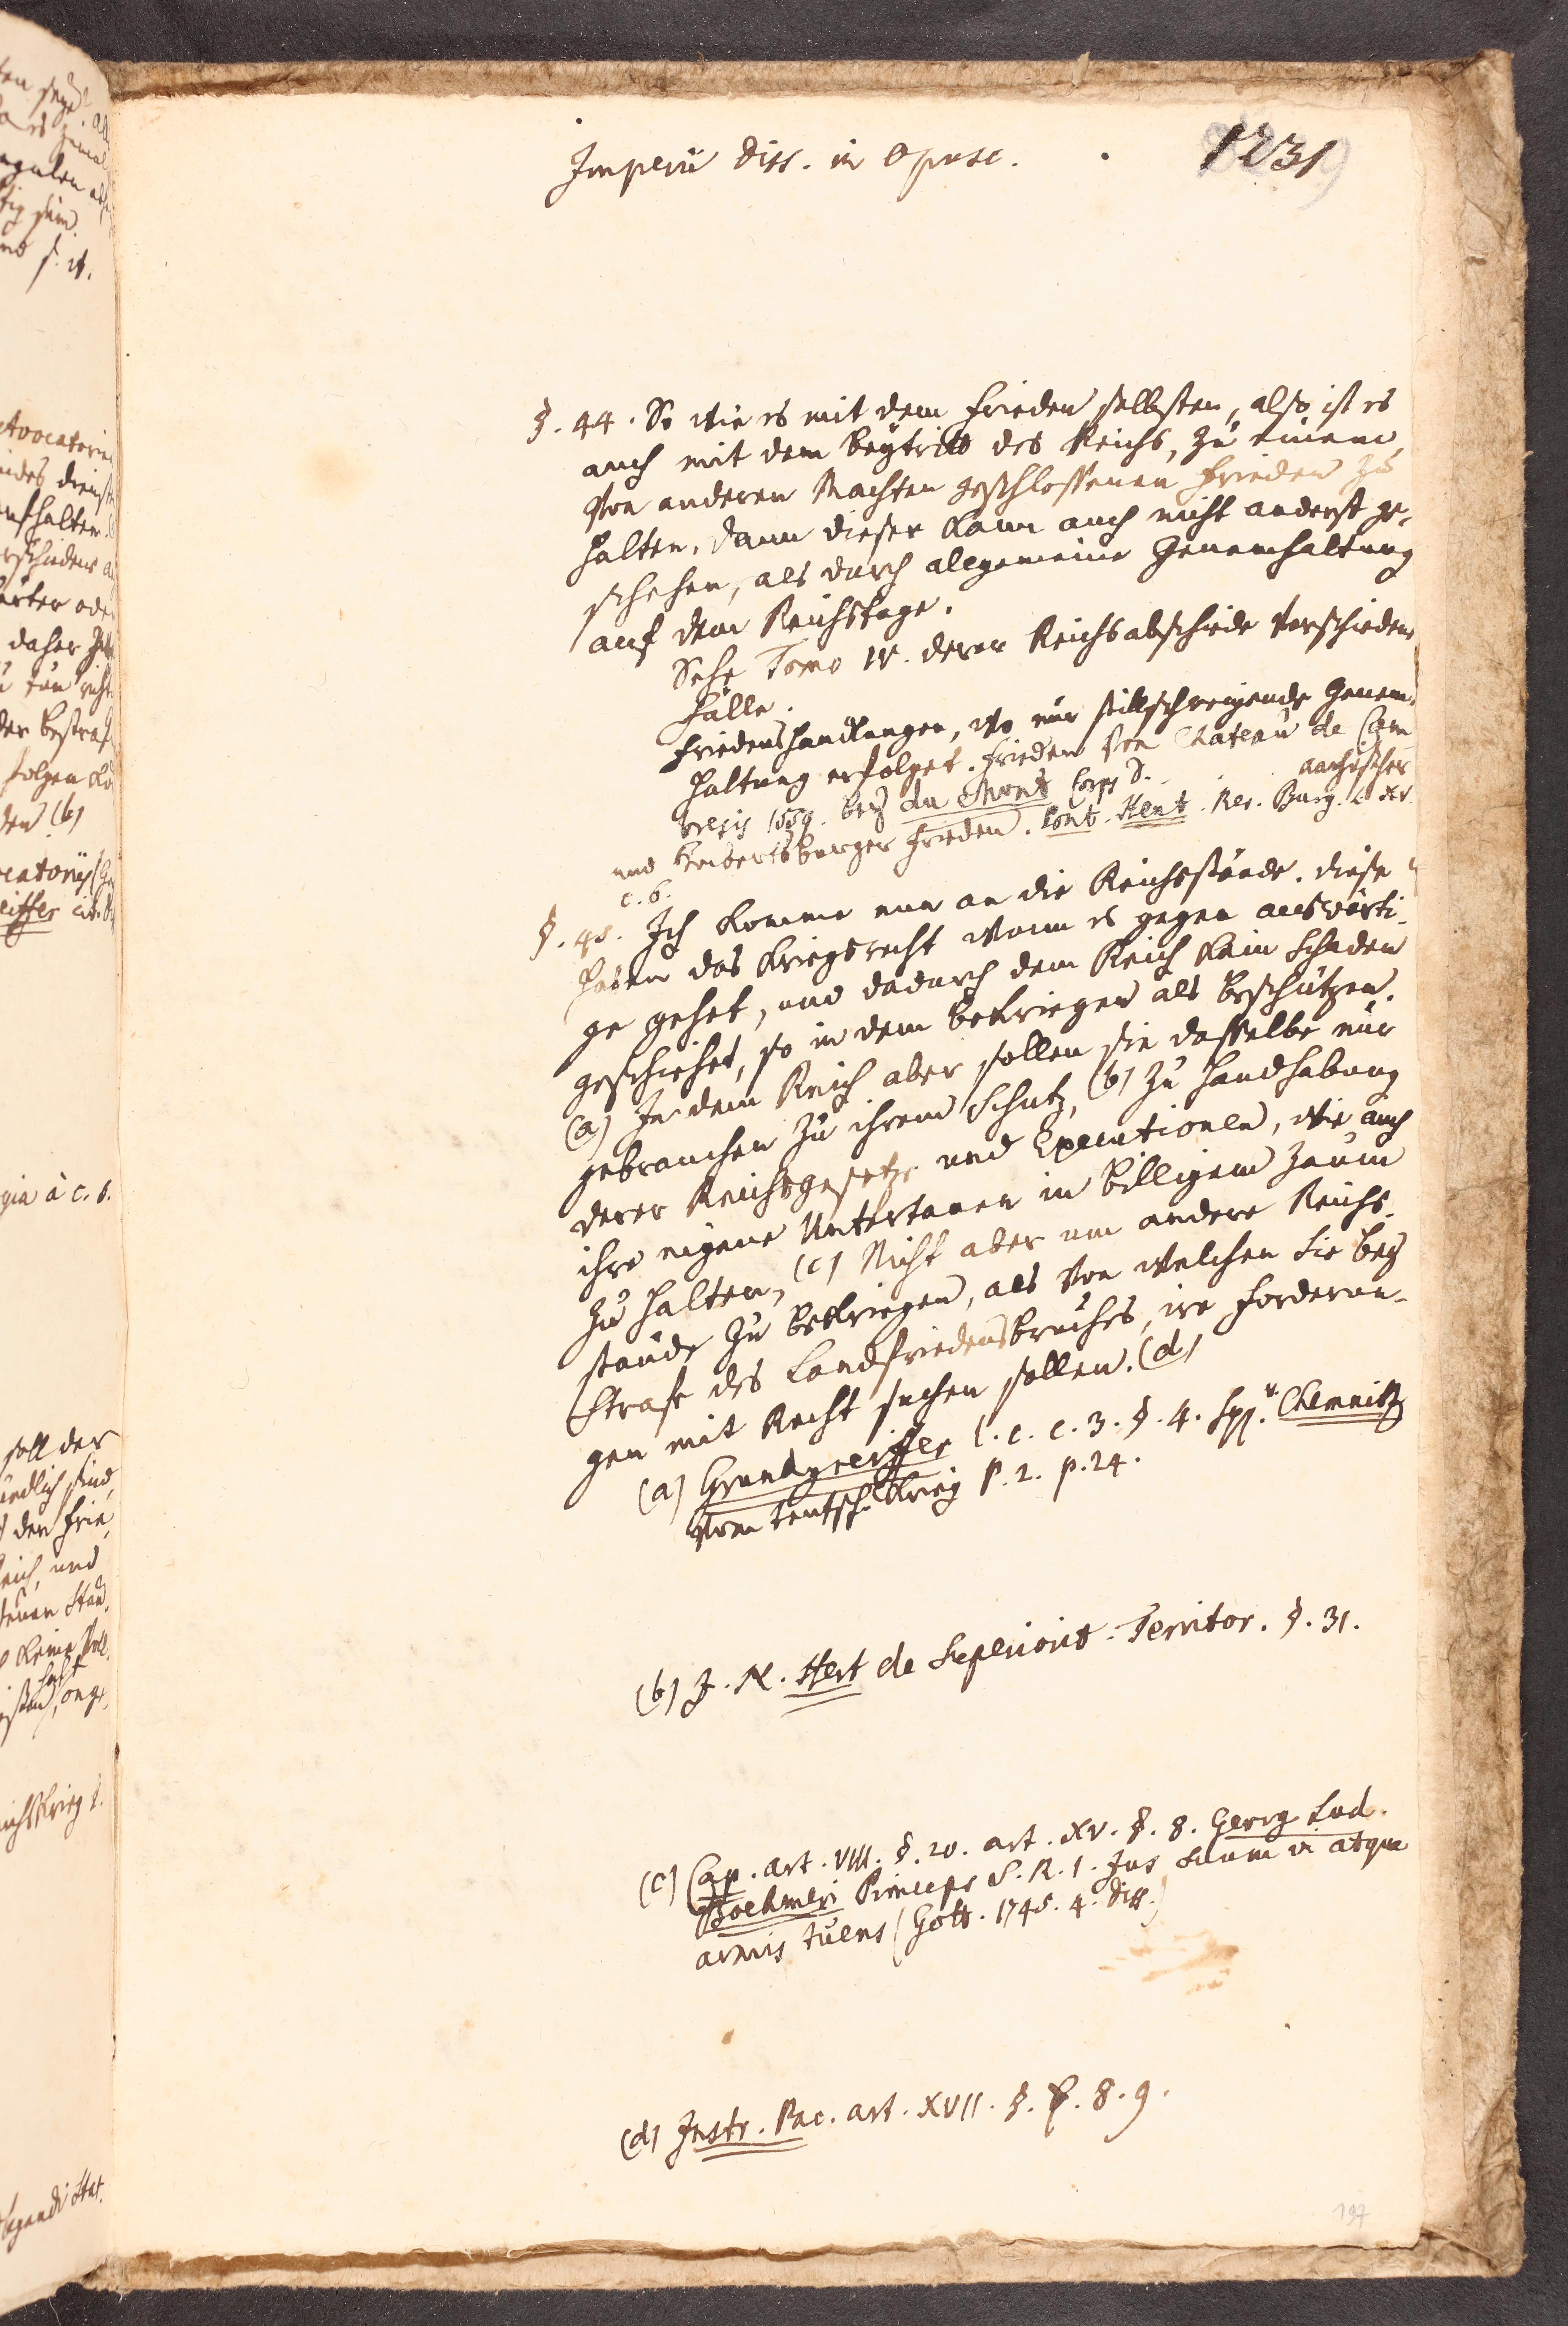 Imperii diss. in Opusc.
1231
§. 44. So wie es mit dem Frieden selbsten, also ist es
auch mit dem Beytritt des Reichs, zu einem
von anderen Machten geschlossenen Frieden zu
halten, dann dieser kann auch nicht anderst ge-
schehen, als durch allgemeine Genemhaltung
auf dem Reichstage.
Sehe Tomo IV. derer Reichsabschiede verschiedene
Fälle.
Friedenshandlungen, wo nur stillschweigende Genem-
haltung erfolget. Frieden von Chateau de Cam
bresis 1559. bey du Mont Corps D.
aachischer
und Hubertsburger Frieden. Cont. Heut. Rer. Burg. L XV.
c. 6.
§. 45. Ich komme nun an die Reichsstände. diese
haben das Kriegsrecht wann es gegen auswärti-
ge gehet, und dadurch dem Reich kein Schaden
geschiehet, so in dem bekriegen als beschützen.
(a) In dem Reich aber sollen sie dasselbe nur
gebrauchen zu ihrem Schutz, (b) zu Handhabung
derer Reichsgesetze und Executionen, wie auch
ihre eigene Untertanen in billigem Zaum
zu halten, (c) Nicht aber um andere Reichs-
stände zu bekriegen, als von welchen Sie bey
Strafe des Landfriedensbruches, ire Forderun-
gen mit Recht suchen sollen. (d)
(a) Grundgreiffer l. c. c. 3. §. 4. Chemnitz
vom teutsch. Krieg P. 2. p. 24.
(b) J. N. Hert de Superiorit. Territor. §. 31.
(c) Cap. art. VIII. §. 20. art. XV. §. 8. Georg Lud.
Boehmeri Princeps S. R. I. Jus suum vi atque
armis tuens (Gott. 1745. 4. diss.)
(d) Instr. Pac. art. XVII. §. 8. 9.
197